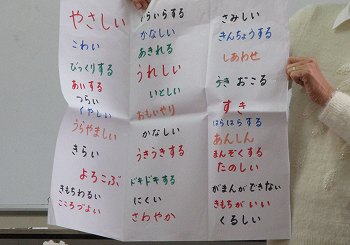 やさしい
こわい
びっくりする
あいする
つらい
いやしい
うらやましい
きらい
よろこぶ
きもちわるい
こころづよい
いらいらする
かなしい
あきれる
うれしい
いとしい
おもいやり
かなしい
うきうきする
ドキドキする
にくい
さわやか
さみしい
きんちょうする
しあわせ
うき おこる
すき
はらはらする
あんしん
まんぞくする
たのしい
がまんができない
きもちがいい
くるしい